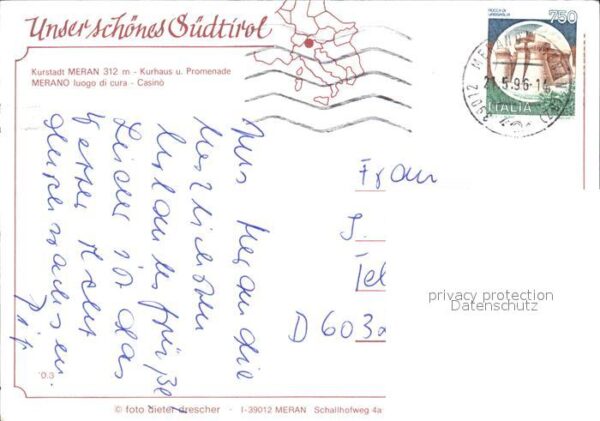 Unser schönes Südtirol
Kurstadt MERAN 312 m - Kurhaus u. Promenade
MERANO luogo di cura - Casinò
ROCCA DI
URBISAGLIA
750
ITALIA
39012 MERAN
21.5.96-14
Aus Meran die
herzlichsten
Urlaubsgrüße
Leider ist das
Wetter recht
durchwachsen.
Frau
J.
D 603
privacy protection
Datenschutz
© foto dieter drescher - I-39012 MERAN Schallhofweg 4a